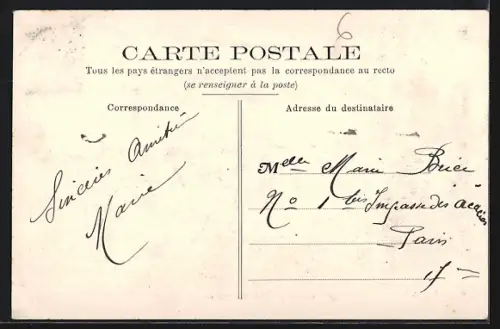 6
CARTE POSTALE
Tous les pays étrangers n'acceptent pas la correspondance au recto
(se renseigner à la poste)
Correspondance
Sincères Amitiés
Marie
Adresse du destinataire
Melle Marie
No 1 bis Impasse des
Paris
17